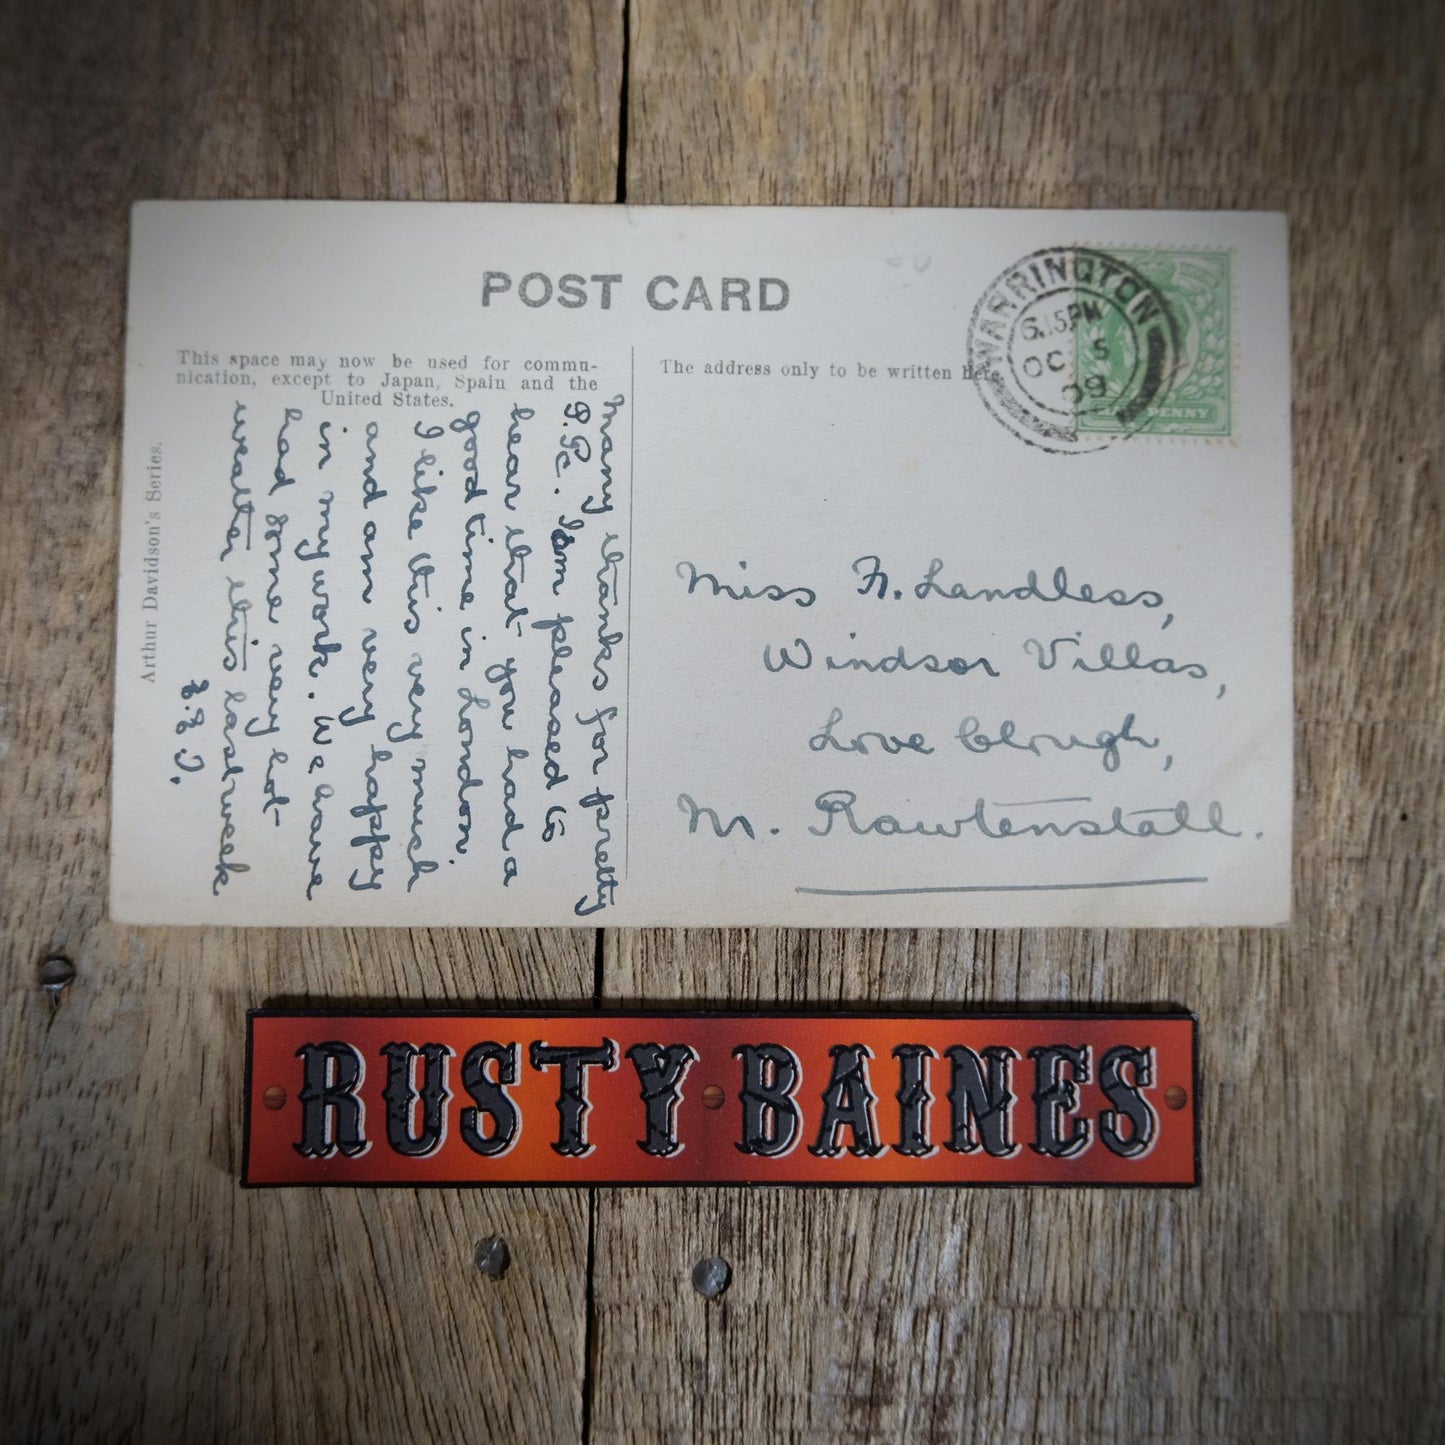 POST CARD
This space may now be used for commu-
nication, except to Japan, Spain and the
United States.
The address only to be written here
WARRINGTON
6.15PM
OC 5
09
PENNY
Arthur Davidson's Series.
Many thanks for pretty
P.Pc. I am pleased to
hear that you had a
good time in London.
I like this very much
and am very happy
in my work. We have
had some very hot
weather this last week
E.E.J.
Miss H. Landless,
Windsor Villas,
Love Clough,
Nr. Rawtenstall.
RUSTY BAINES